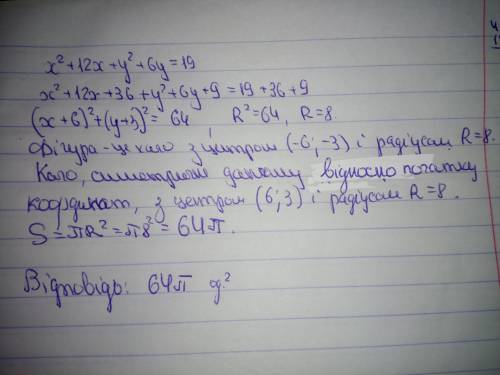 x²+12x+y²+6y=19
x²+12x+36+y²+6y+9=19+36+9
(x+6)²+(y+3)²=64, R²=64, R=8.
Фігура-це коло з центром (-6;-3) і радіусом R=8.
Коло, симетричне даному відносно початку
координат, з центром (6;3) і радіусом R=8.
S=πR²=π8²=64π.
Відповідь: 64π од.²